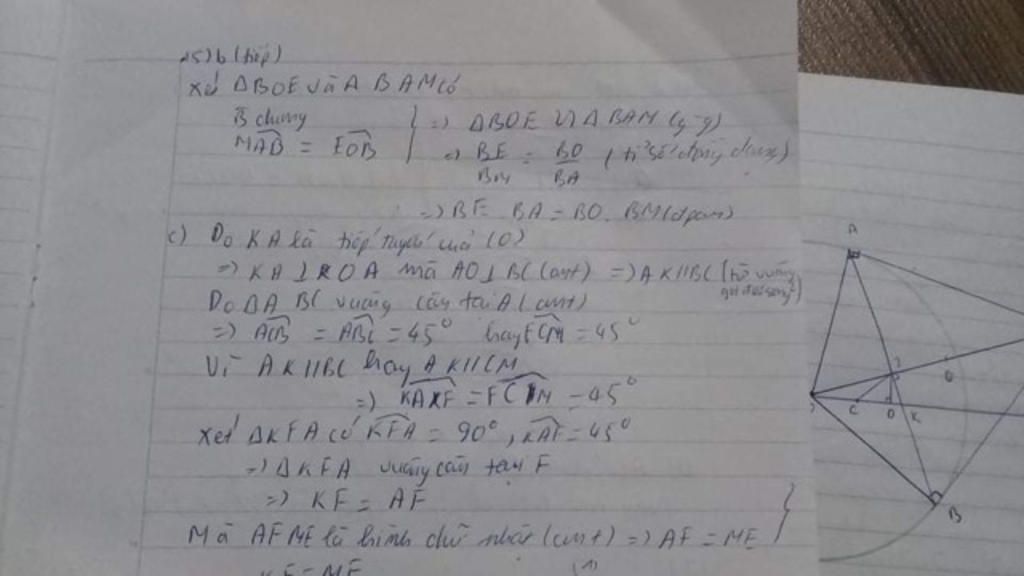 b (tiếp)
Xét ΔBOE và Δ BAM có
B̂ chung
MAB = EOB
=> ΔBOE ∽ Δ BAM (g-g)
=> BE/BM = BO/BA (tỉ số đồng dạng)
=> BE BA = BO. BM (đpcm)
c) Do KA là tiếp tuyến của (O)
=> KA ⊥ OA mà AO ⊥ BC (cmt) => AK // BC (từ vuông góc đến song²)
Do Δ A BC vuông cân tại A (cmt)
=> ACB = ABC = 45° hay FCM = 45°
Vì AK // BC hay AK // CM
=> KAF = FCM = 45°
Xét ΔKFA có KFA = 90°, KAF = 45°
=> ΔKFA vuông cân tại F
=> KF = AF
Mà AFME là hình chữ nhật (cmt) => AF = ME
KF = ME (1)
A
C
O
K
B